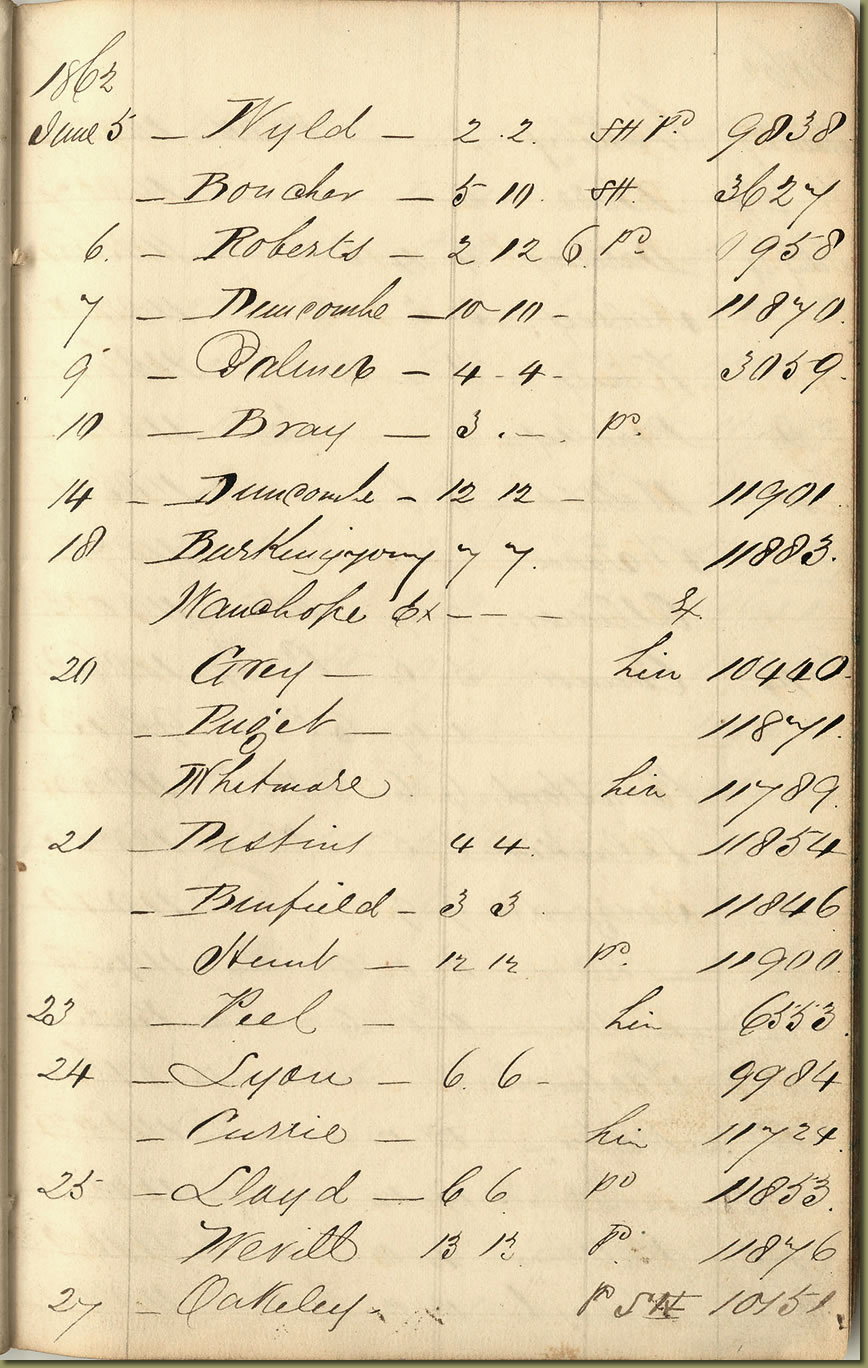 1862
June 5 — Wyld — 2 . 2 . SH Pd 9838
— Boucher — 5 10 . SH. 3627
6. — Roberts — 2 12 6 Pd 958
7 — Duncombe — 10 - 10 - 11870.
9 — Palmer — 4 - 4 - 3059.
10 — Bray — 3 . — . Pd.
14 — Duncombe — 12 12 — 11901.
18 7 7. 11883.
Wauchope Ex — — —
20 Grey — lin 10440.
— Puget — 11871.
Whitmore . lin 11789.
21 — 4 4. 11854
— Binfield — 3 3 . 11846
- Hunt — 12 12. Pd. 11900.
23 — Peel — lin 6553.
24 — Lyon — 6. 6 - 9984
— Currie — lin 11724.
25 — Lloyd — 6 6 Pd 11853.
Nevill 13 13. Pd. 11876
27 — Oakeley. P SH 10151